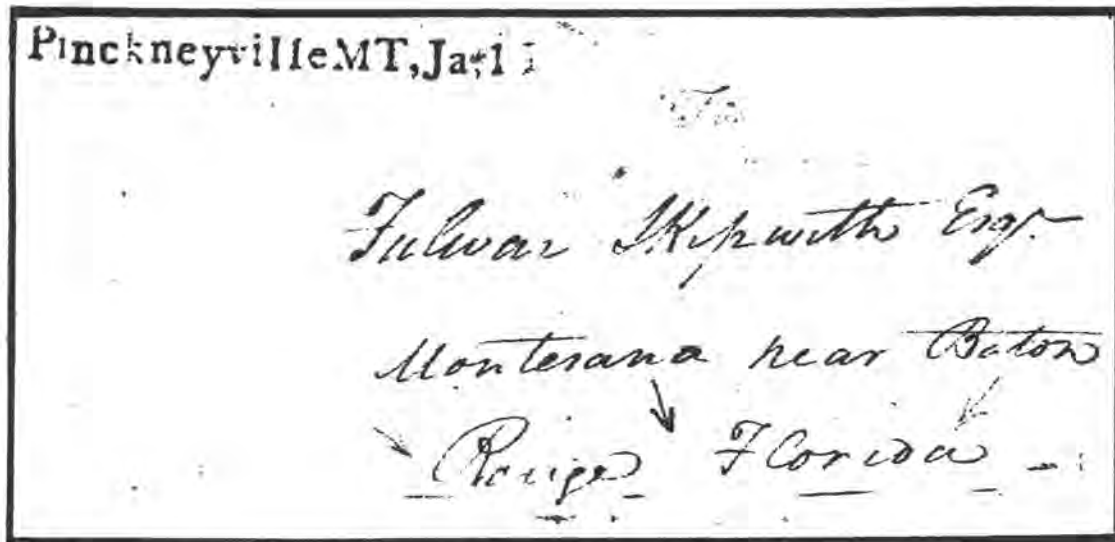 Pinckneyville MT, Ja; 1
To
Fulwar Skipwith Esqr.
Montesana near Baton
Rouge Florida